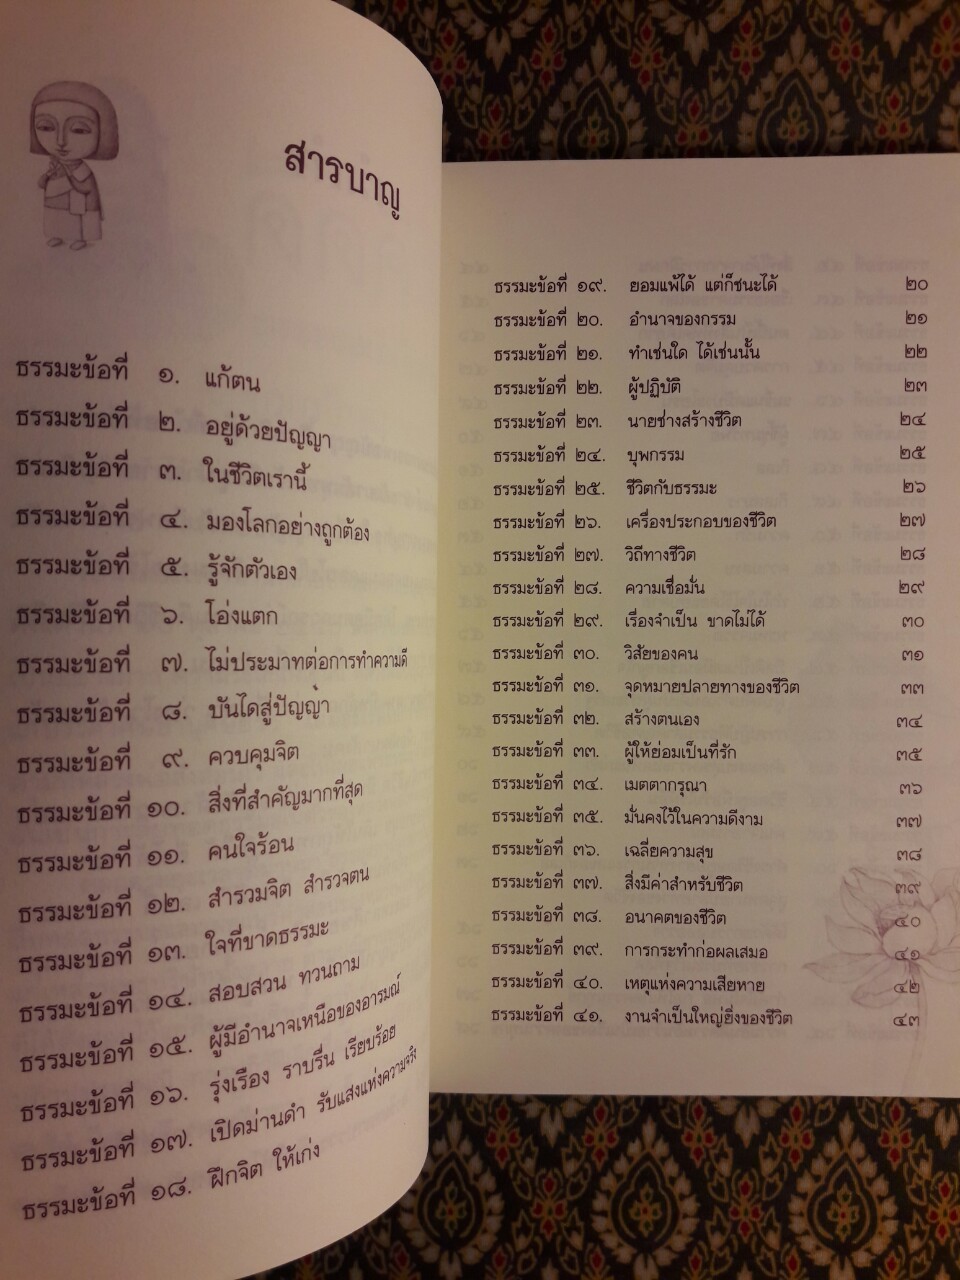 สารบาญ
ธรรมะข้อที่ ๑. แก้ตน
ธรรมะข้อที่ ๒. อยู่ด้วยปัญญา
ธรรมะข้อที่ ๓. ในชีวิตเรานี้
ธรรมะข้อที่ ๔. มองโลกอย่างถูกต้อง
ธรรมะข้อที่ ๕. รู้จักตัวเอง
ธรรมะข้อที่ ๖. โอ่งแตก
ธรรมะข้อที่ ๗. ไม่ประมาทต่อการทำความดี
ธรรมะข้อที่ ๘. บันไดสู่ปัญญา
ธรรมะข้อที่ ๙. ควบคุมจิต
ธรรมะข้อที่ ๑๐. สิ่งที่สำคัญมากที่สุด
ธรรมะข้อที่ ๑๑. คนใจร้อน
ธรรมะข้อที่ ๑๒. สำรวมจิต สำรวจตน
ธรรมะข้อที่ ๑๓. ใจที่ขาดธรรมะ
ธรรมะข้อที่ ๑๔. สอบสวน ทวนถาม
ธรรมะข้อที่ ๑๕. ผู้มีอำนาจเหนือของอารมณ์
ธรรมะข้อที่ ๑๖. รุ่งเรือง ราบรื่น เรียบร้อย
ธรรมะข้อที่ ๑๗. เปิดม่านดำ รับแสงแห่งความจริง
ธรรมะข้อที่ ๑๘. ฝึกจิต ให้เก่ง
ธรรมะข้อที่ ๑๙. ยอมแพ้ได้ แต่ก็ชนะได้ ๒๐
ธรรมะข้อที่ ๒๐. อำนาจของกรรม ๒๑
ธรรมะข้อที่ ๒๑. ทำเช่นใด ได้เช่นนั้น ๒๒
ธรรมะข้อที่ ๒๒. ผู้ปฏิบัติ ๒๓
ธรรมะข้อที่ ๒๓. นายช่างสร้างชีวิต ๒๔
ธรรมะข้อที่ ๒๔. บุพกรรม ๒๕
ธรรมะข้อที่ ๒๕. ชีวิตกับธรรมะ ๒๖
ธรรมะข้อที่ ๒๖. เครื่องประกอบของชีวิต ๒๗
ธรรมะข้อที่ ๒๗. วิถีทางชีวิต ๒๘
ธรรมะข้อที่ ๒๘. ความเชื่อมั่น ๒๙
ธรรมะข้อที่ ๒๙. เรื่องจำเป็น ขาดไม่ได้ ๓๐
ธรรมะข้อที่ ๓๐. วิสัยของคน ๓๑
ธรรมะข้อที่ ๓๑. จุดหมายปลายทางของชีวิต ๓๓
ธรรมะข้อที่ ๓๒. สร้างตนเอง ๓๔
ธรรมะข้อที่ ๓๓. ผู้ให้ย่อมเป็นที่รัก ๓๕
ธรรมะข้อที่ ๓๔. เมตตากรุณา ๓๖
ธรรมะข้อที่ ๓๕. มั่นคงไว้ในความดีงาม ๓๗
ธรรมะข้อที่ ๓๖. เฉลี่ยความสุข ๓๘
ธรรมะข้อที่ ๓๗. สิ่งมีค่าสำหรับชีวิต ๓๙
ธรรมะข้อที่ ๓๘. อนาคตของชีวิต ๔๐
ธรรมะข้อที่ ๓๙. การกระทำก่อผลเสมอ ๔๑
ธรรมะข้อที่ ๔๐. เหตุแห่งความเสียหาย ๔๒
ธรรมะข้อที่ ๔๑. งานจำเป็นใหญ่ยิ่งของชีวิต ๔๓